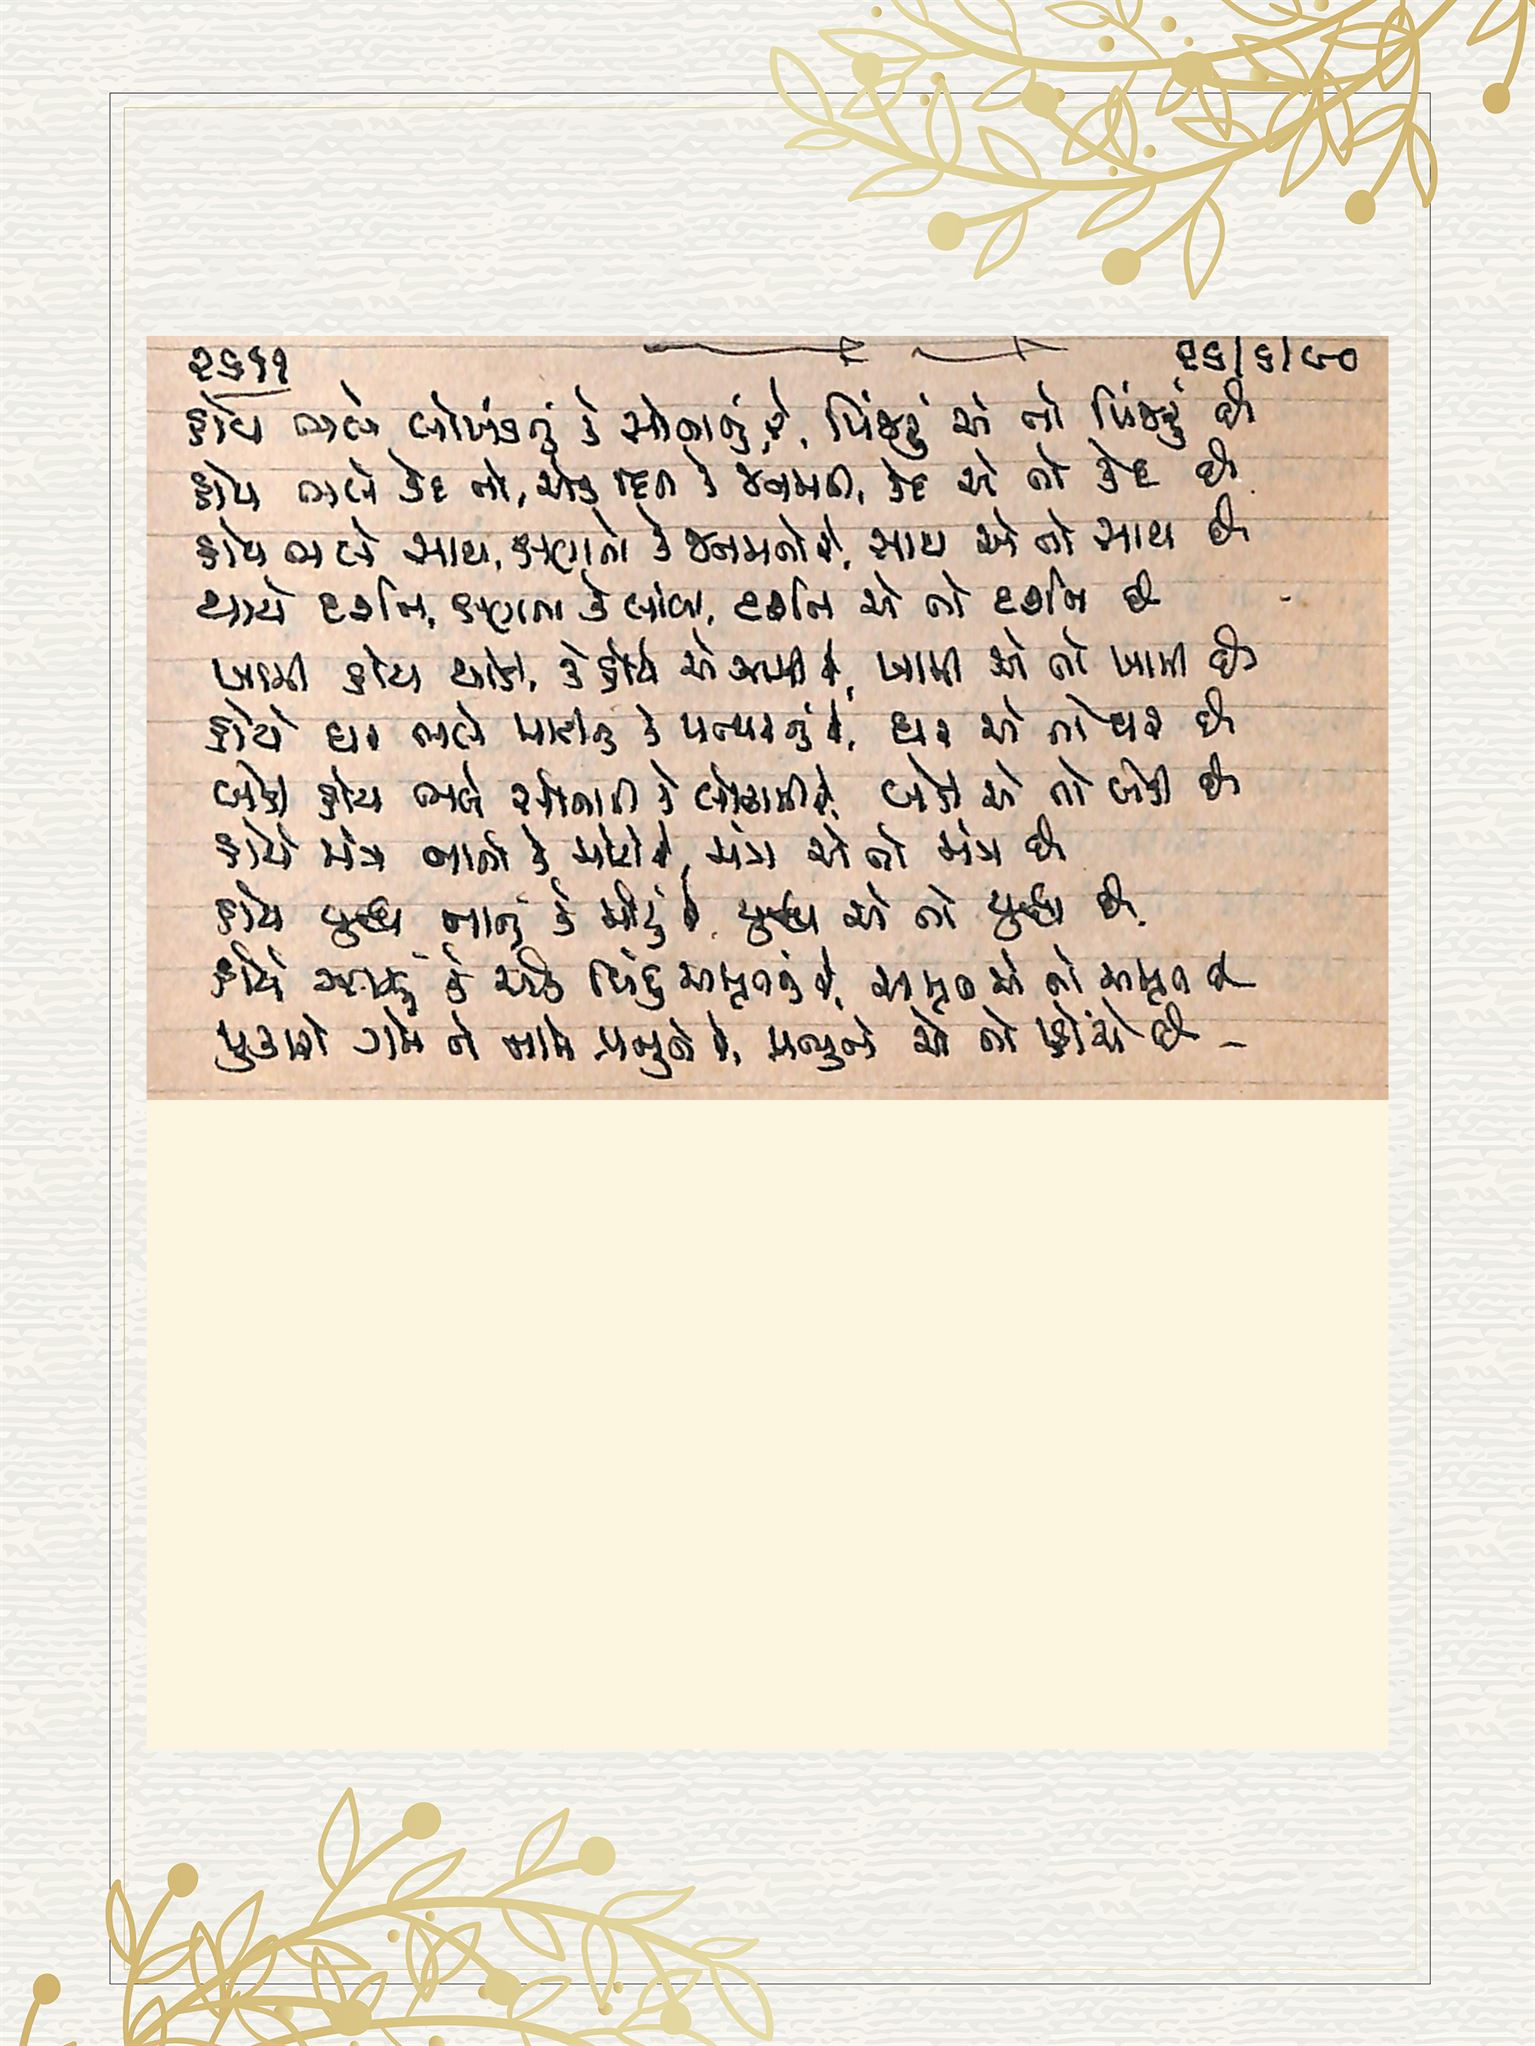 ૨૬૧૧ ૨૬/૬/૯૦
હોય ભલે લોખંડનું કે સોનાનું રે, પિંજરું એ તો પિંજરું છે
હોય ભલે કેદ તો, એક દિન કે જનમની, કેદ એ તો કેદ છે
હોય ભલે સાથ, ક્ષણનો કે જનમનો રે, સાથ એ તો સાથ છે
થાયે દર્શન, ક્ષણના કે લાંબા, દર્શન એ તો દર્શન છે
ખામી હોય થોડી, કે હોયે એ અમાપ રે, ખામી એ તો ખામી છે
હોયે ઘર ભલે માટીનું કે પત્થરનું રે, ઘર એ તો ઘર છે
બેડી હોય ભલે સોનાની કે લોઢાની રે, બેડી એ તો બેડી છે
હોયે મંત્ર નાનો કે મોટો રે, મંત્ર એ તો મંત્ર છે
હોય યુદ્ધ નાનું કે મોટું રે યુદ્ધ એ તો યુદ્ધ છે.
હોયે કે એક બિંદુ અમૃતનું રે, અમૃત એ તો અમૃત છે
પુકારો ગમે તે નામે પ્રભુને રે, પ્રભુને એ તો પહોંચે છે -